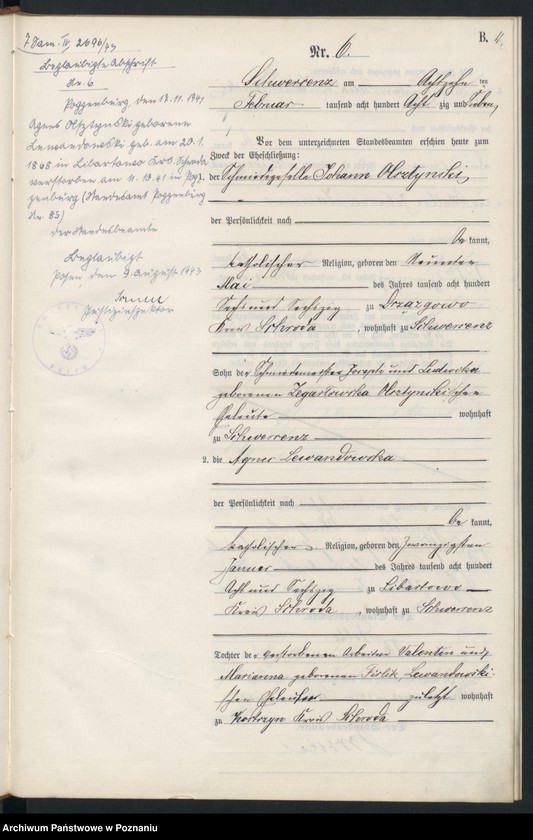 7 Sam. IV 2696/43
Beglaubigte Abschrift
Nr. 6
Poggenburg, den 12.11.1941
Agnes Olsztynski geborene
Lewandowski geb. am 20.1.
1868 in Libartowo Krs. Schroda
verstorben am 11.10.41 in Pog-
genburg (Standesamt Poggenburg
Nr. 85)
der Standesbeamte
Beglaubigt
Posen, den 9. August 1943
Justizinspektor
B. 4.
Nr. 6.
Schwersenz am Achtzehn ten
Februar tausend acht hundert Acht zig und Sieben,
Vor dem unterzeichneten Standesbeamten erschien heute zum
Zweck der Eheschließung:
der Schmiedegeselle Johann Olsztynski,
der Persönlichkeit nach
be kannt,
katholischer Religion, geboren den Neunten
Mai des Jahres tausend acht hundert
Sechs und Sechszig zu Drzązgowo
Kreis Schroda, wohnhaft zu Schwersenz
Sohn der Schmiedemeister Joseph und Ludowika
geborenen Zegartowska Olsztynski'schen
Eheleute wohnhaft
zu Schwersenz
2. die Agnes Lewandowska
der Persönlichkeit nach
be kannt,
katholischer Religion, geboren den Zwanzigsten
Januar des Jahres tausend acht hundert
Acht und Sechszig zu Libartowo
Kreis Schroda, wohnhaft zu Schwersenz
Tochter der verstorbenen Arbeiter Valentin und
Marianna geborenen Lewandowski-
schen Eheleute zuletzt wohnhaft
zu Kostrzyn Kreis Schroda
Archiwum Państwowe w Poznaniu